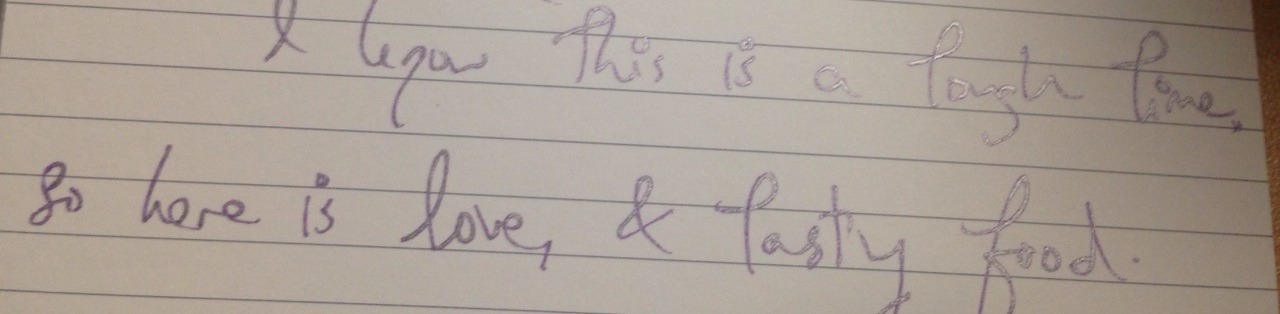 I know this is a tough time,
So here is love, & tasty food.